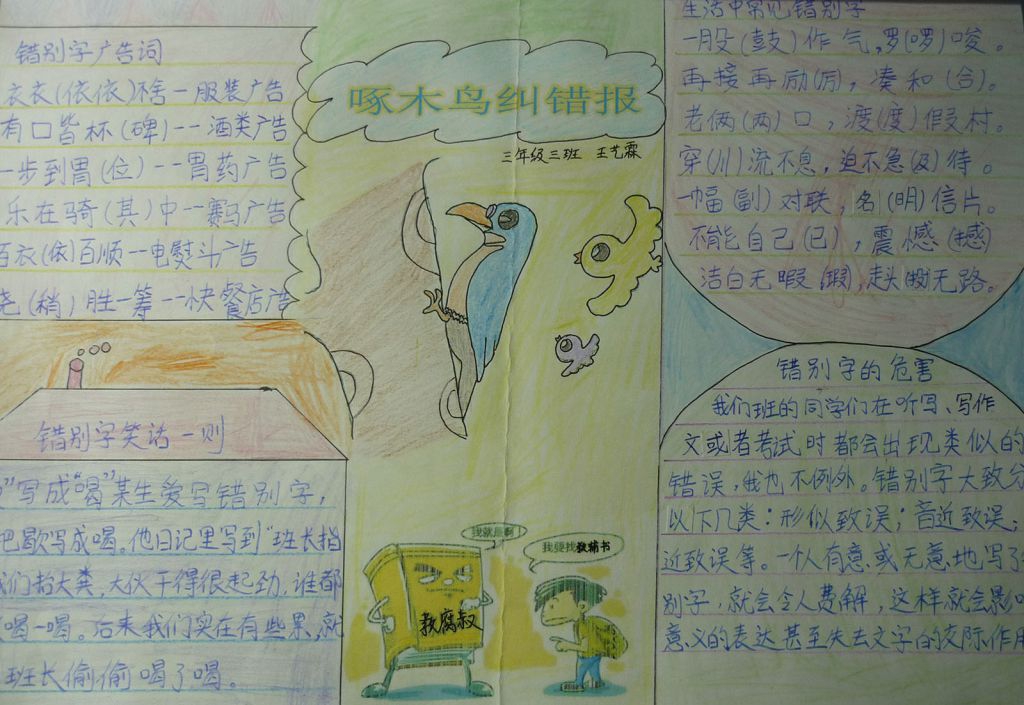 错别字广告词
衣衣(依依)不舍一服装广告
有口皆杯(碑)一一酒类广告
一步到胃(位)一一胃药广告
乐在骑(其)中一赛马广告
百衣(依)百顺一电熨斗广告
(稍)胜一筹一一快餐店广
错别字笑话一则
"写成"喝"某生爱写错别字,
把歇写成喝。他日记里写到"班长指
我们抬大粪,大伙干得很起劲,谁都
喝一喝。后来我们实在有些累,就
班长偷偷喝了喝。
啄木鸟纠错报
三年级三班 王艺霖
我就是啊
我要找教辅书
教腐叔
生活中常见错别字
一股(鼓)作气,罗(啰)唆。
再接再励(厉),凑和(合)。
老俩(两)口,渡(度)假村。
穿(川)流不息,迫不急(及)待。
一幅(副)对联,名(明)信片。
不能自己(已),震憾(撼)
洁白无暇(瑕),走头(投)无路。
错别字的危害
我们班的同学们在听写、写作
文或者考试时都会出现类似的
错误,我也不例外。错别字大致分
以下几类:形似致误;音近致误;
近致误等。一个人有意或无意地写了
别字,就会令人费解,这样就会影响
意义的表达甚至失去文字的交际作用